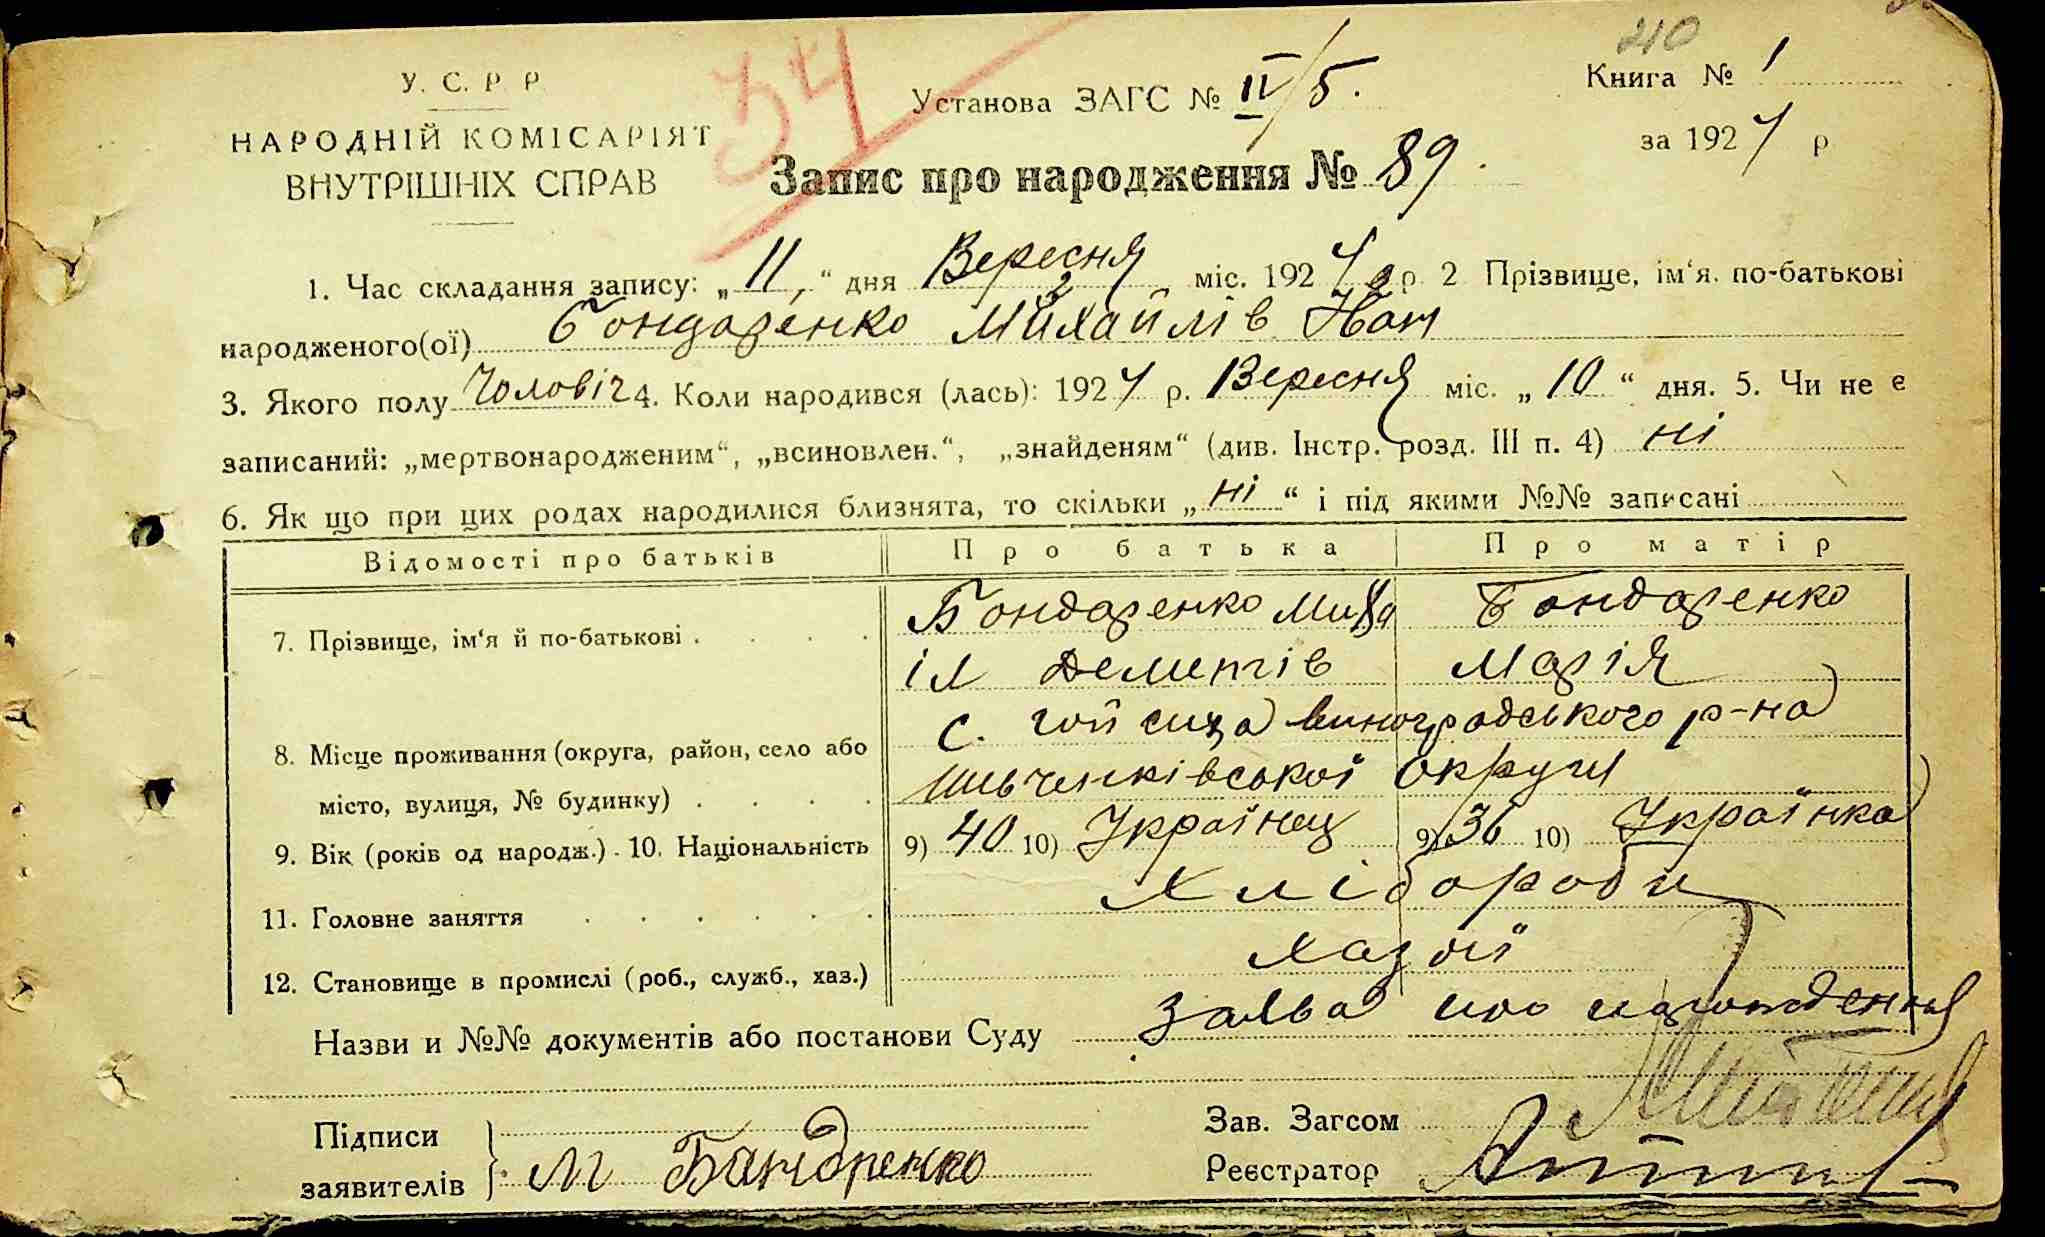 210
У. С. Р Р
Установа ЗАГС № IV/5.
Книга № 1
34
НАРОДНІЙ КОМІСАРІЯТ
ВНУТРІШНІХ СПРАВ
за 1927 р
Запис про народження № 89.
1. Час складання запису: „11" дня Вересня міс. 1927 р. 2 Прізвище, ім'я. по-батькові
народженого(ої) Бондаренко Михайлів Іван
3. Якого полу Чоловіч 4. Коли народився (лась): 1927 р. Вересня міс. „10" дня. 5. Чи не є
записаний: „мертвонародженим", „всиновлен.", „знайденям" (див. Інстр. розд. III п. 4) ні
6. Як що при цих родах народилися близнята, то скільки „ні" і під якими №№ записані
Відомості про батьків Про батька Про матір
7. Прізвище, ім'я й по-батькові . . . . Бондаренко Миха Бондаренко
іл Деметів Марія
8. Місце проживання (округа, район, село або с. виноградського р-на
місто, вулиця, № будинку) . . . . округи
9. Вік (років од народж.) . 10. Національність 9) 40 10) Українец 9) 36 10) Українка
11. Головне заняття . . . . . . Хлібороби
12. Становище в промислі (роб., служб., хаз.) хазяї
Назви и №№ документів або постанови Суду Заява про народження
Підписи Зав. Загсом
заявителів М Бандренко Реєстратор